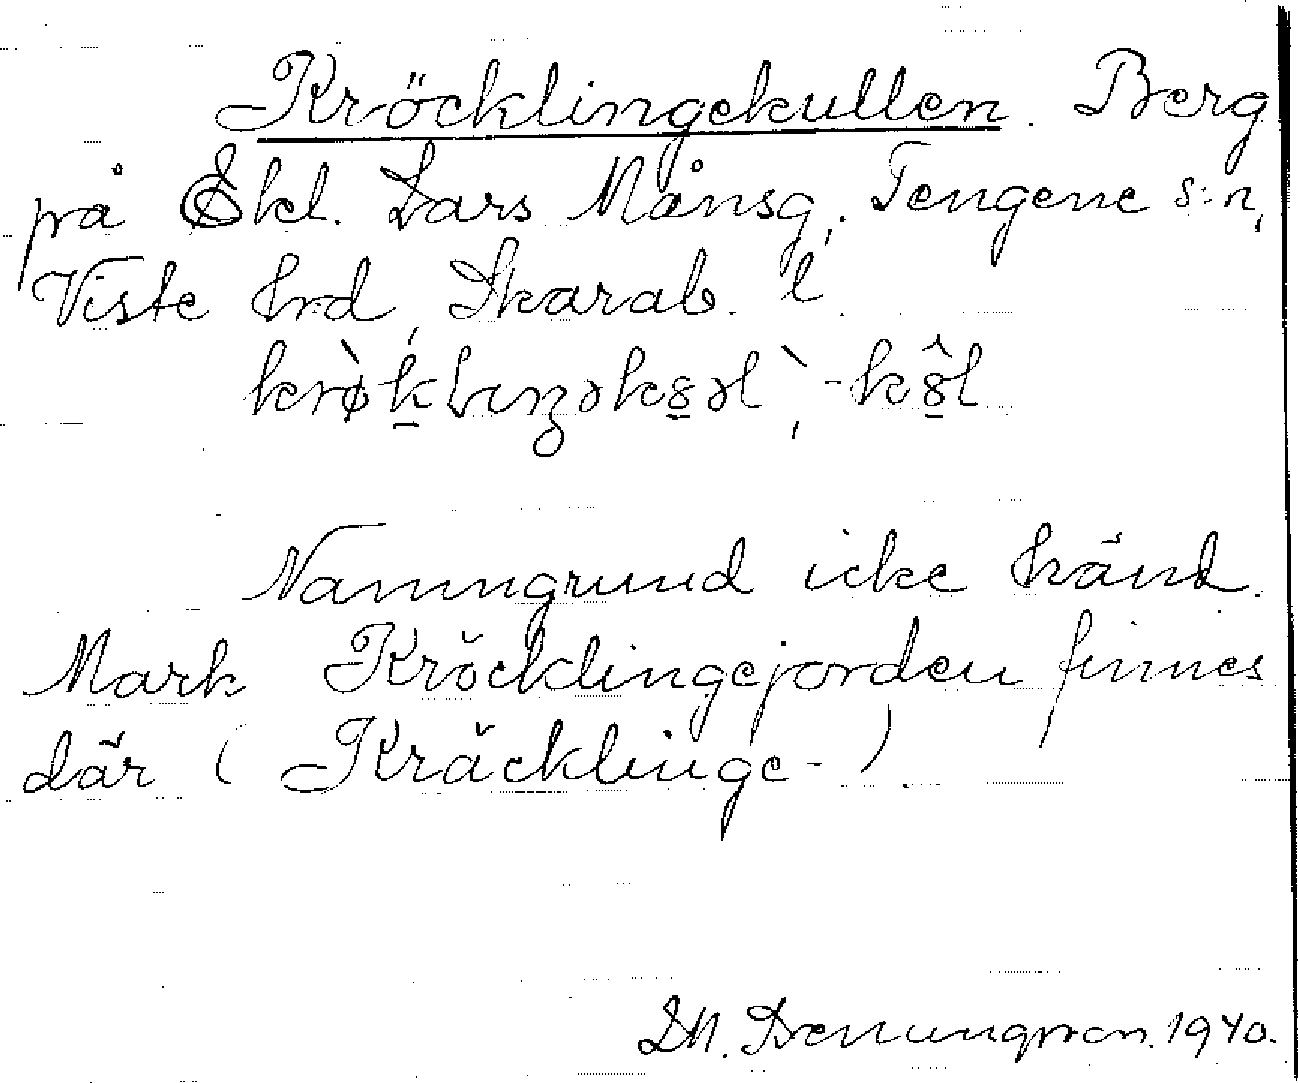 Kröcklingekullen. Berg
på Ekl. Lars Månsg., Tengene s:n,
Viste hrd, Skarab. l.
Namngrund icke känd.
Mark Kröcklingejorden finnes
där (Kräcklinge-).
1940.